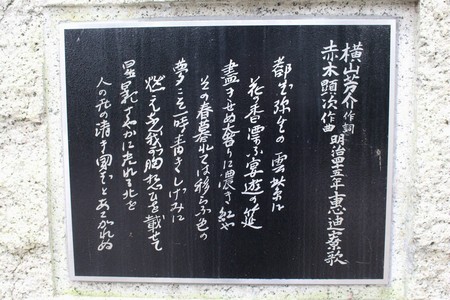 横山芳介作詞
赤木顕次作曲 明治四十五年恵迪寮歌
都ぞ弥生の雲紫に
花の香漂ふ宴遊の筵
盡きせぬ奢りに濃き紅や
その春暮れては移らふ色の
夢こそ一時青きしげみに
燃えなん我が胸想ひを載せて
星影さやかに光れる北を
人の世の清き國ぞとあこがれぬ